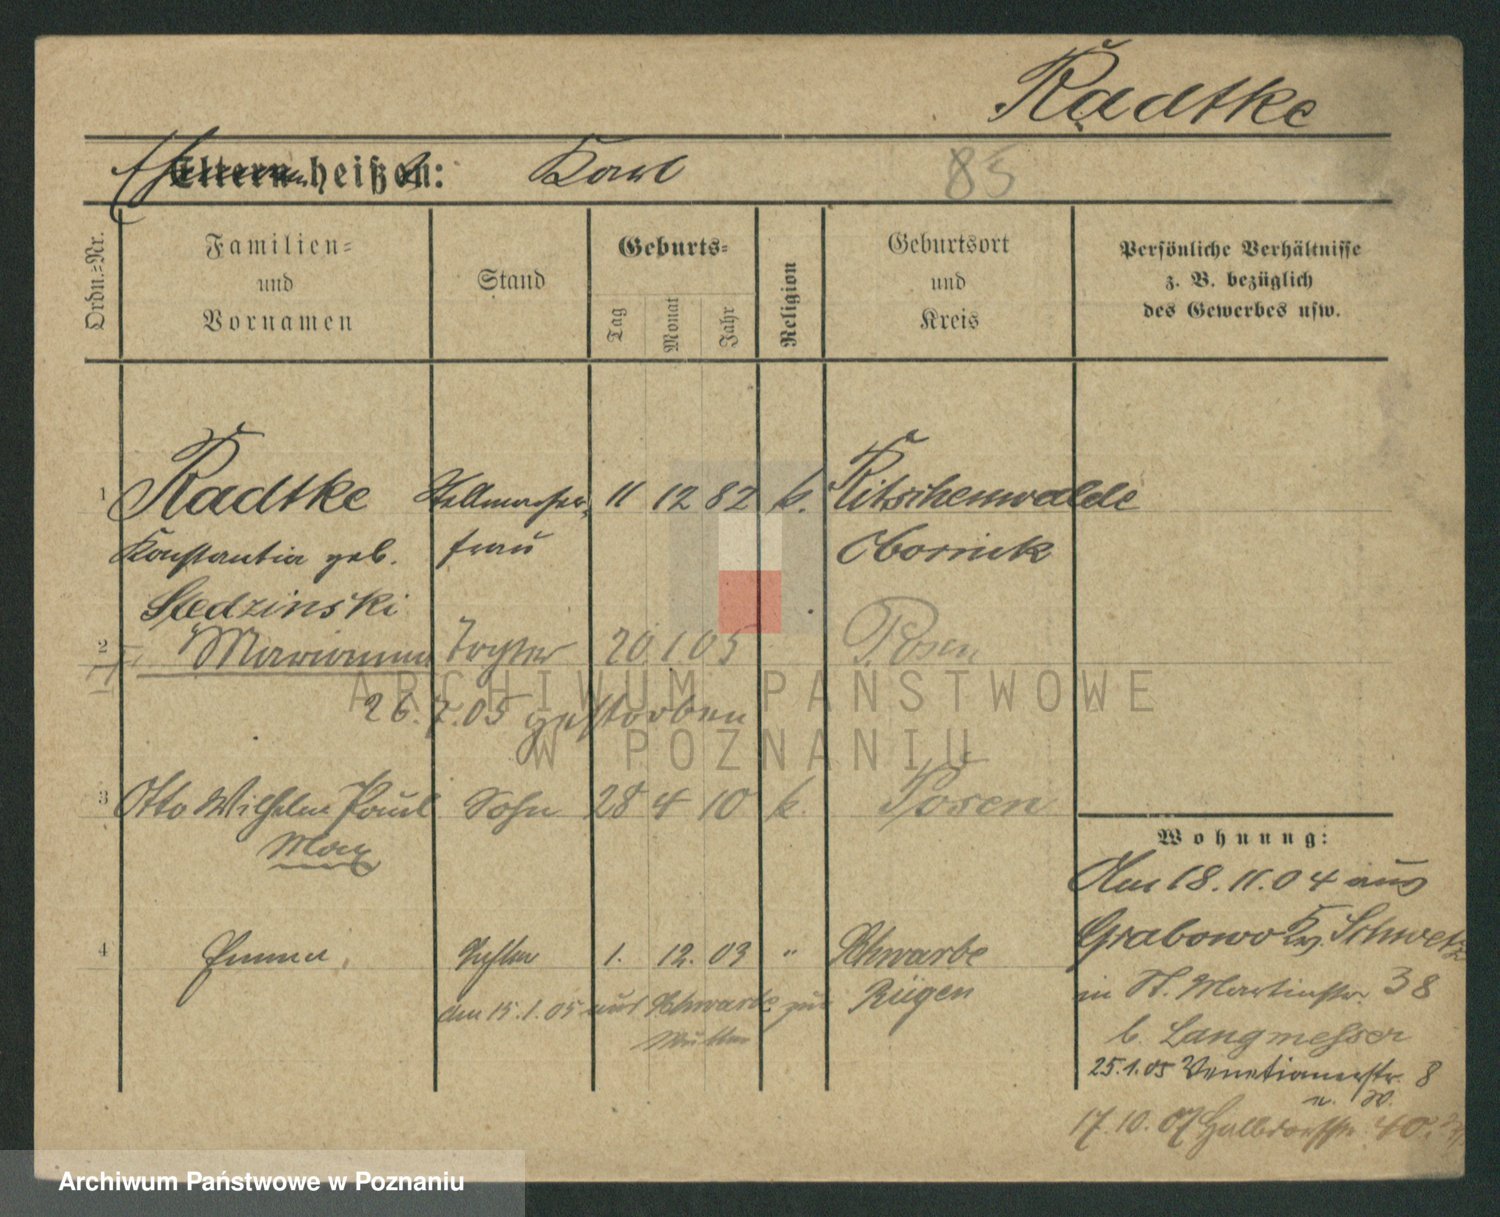 Radtke
Eltern heißen: Karl
85
Ordn.=Nr.
Familien=
und
Vornamen
Stand
Geburts=
Tag
Monat
Jahr
Religion
Geburtsort
und
Kreis
Persönliche Verhältnisse
z. B. bezüglich
des Gewerbes usw.
1 Radtke Stellmacher 11 12 82 k. Ritschenwalde
Konstantia geb. frau Obornick
Sledzinski
2 Marianna Tochter 20 1 05 Posen
26.7.05 gestorben
3 Otto Wilhelm Paul Sohn 28 4 10 k. Posen
Max
4 Emma Tochter 1. 12. 03 " Schwarbe
am 15.1.05 aus Schwarbe zur Rügen
Mutter
Wohnung:
Am 18.11.04 aus
Grabowo Kr. Schwetz
in St. Martinstr. 38
b. Langmesser
25.1.05 Venetianerstr. 8
17.10.07 Halbdorfstr. 40
ARCHIWUM PAŃSTWOWE
W POZNANIU
Archiwum Państwowe w Poznaniu